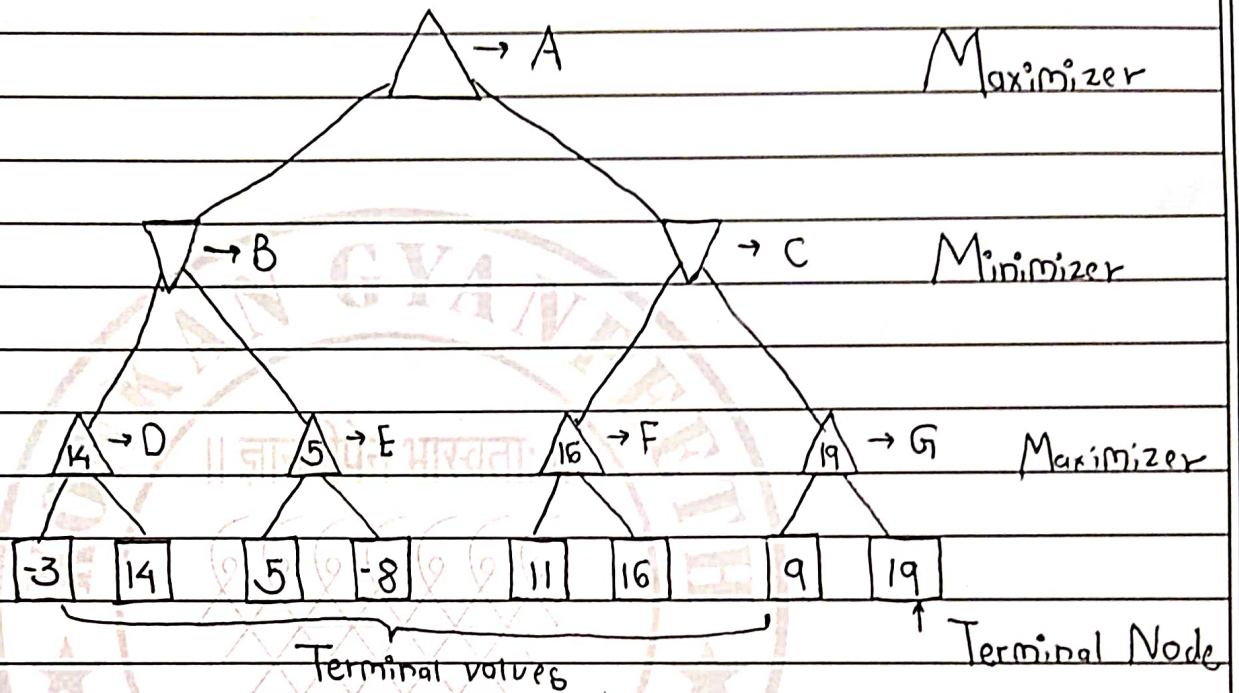 → A Maximizer
→ B → C Minimizer
14 → D 5 → E 16 → F 19 → G Maximizer
-3 14 5 -8 11 16 9 19
Terminal values
Terminal Node
GYAN